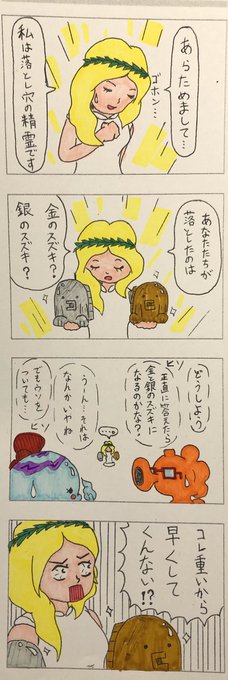 あらためまして…
ゴホン…
私は落とし穴の精霊です
あなたたちが
落としたのは
金のスズキ？
銀のスズキ？
ヒソ
どうしよう
正直に答えたら
金と銀のスズキに
なるのかな？
…
うーん…それは
なんかいわね
でもウソを
ついても…
ヒソ
コレ重いから
早くして
くんない!?